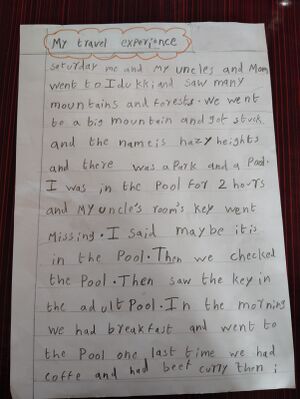 My travel experience
Saturday me and My uncles and Mom
went to Idukki and saw many
mountains and forests. We went
to a big mountain and got stuck
and the name is hazy heights
and there was a Park and a Pool.
I was in the Pool for 2 hours
and My uncle's room's key went
Missing. I said maybe it is
in the Pool. Then we checked
the Pool. Then saw the key in
the adult Pool. In the morning
we had breakfast and went to
the Pool one last time we had
coffe and had beef curry then i